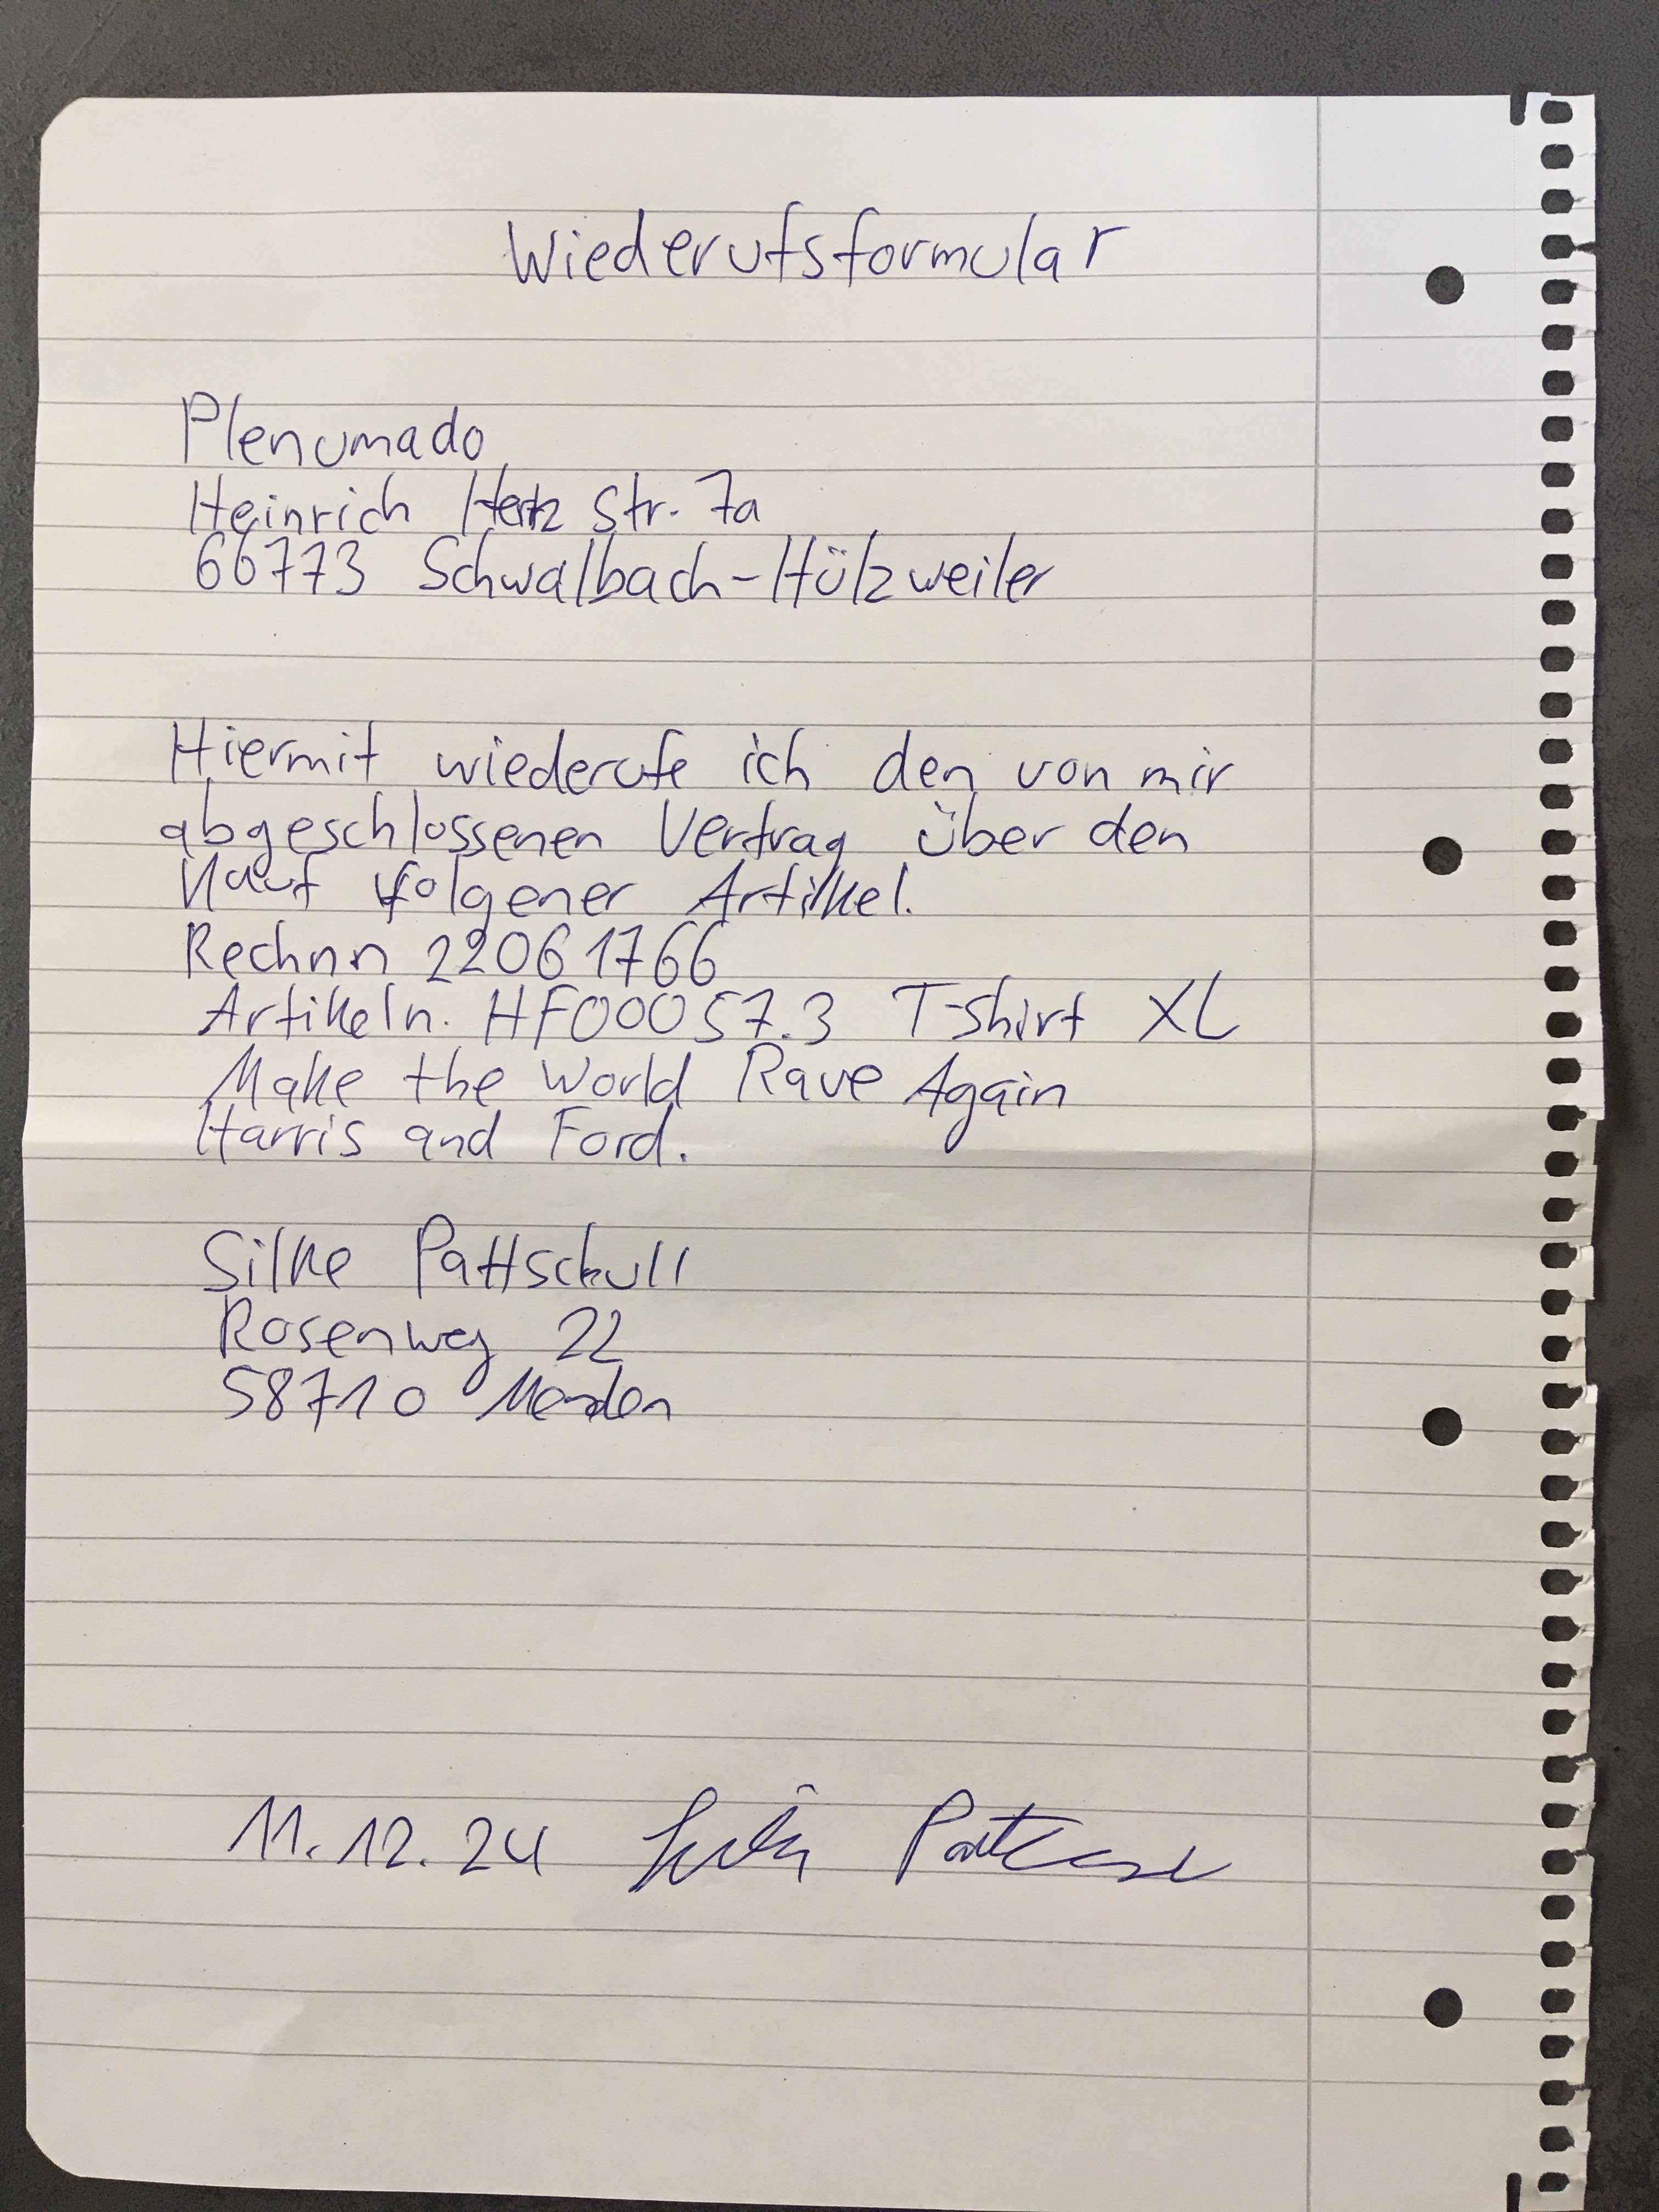 Wiederufsformular
Plenumado
Heinrich Hertz Str. 7a
66773 Schwalbach-Hülzweiler
Hiermit wiederufe ich den von mir
abgeschlossenen Vertrag über den
Kauf folgener Artikel.
Rechnn 22061766
Artikeln. HF00057.3 T-Shirt XL
Make the World Rave Again
Harris and Ford.
Silke Pattschull
Rosenweg 22
58710 Menden
11.12.24